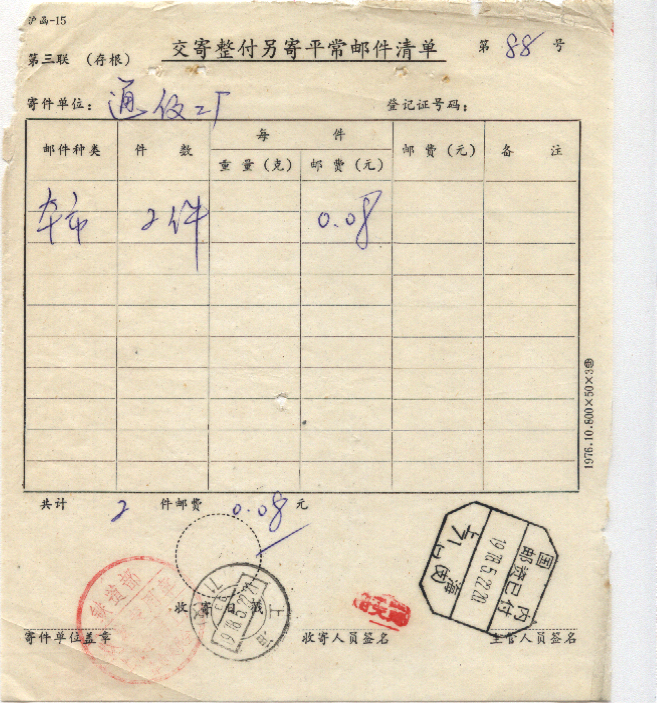 沪函-15
交寄整付另寄平常邮件清单 第 88 号
第三联 (存根)
寄件单位: 通仪二厂 登记证号码:
邮件种类 件数 每件 邮费(元) 备注
重量(克) 邮费(元)
本市 2件 0.08
共计 2 件邮费 0.08 元
1976.10.800×50×3
国内
邮资已付
1978.5.22.20
上海
收寄日戳
上海
1978.5.22.20
寄件单位盖章 收寄人员签名 主管人员签名